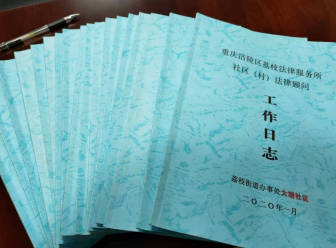 重庆涪陵区荔枝法律服务所
社区（村）法律顾问
工作日志
荔枝街道办事处大塘社区
二〇二〇年一月